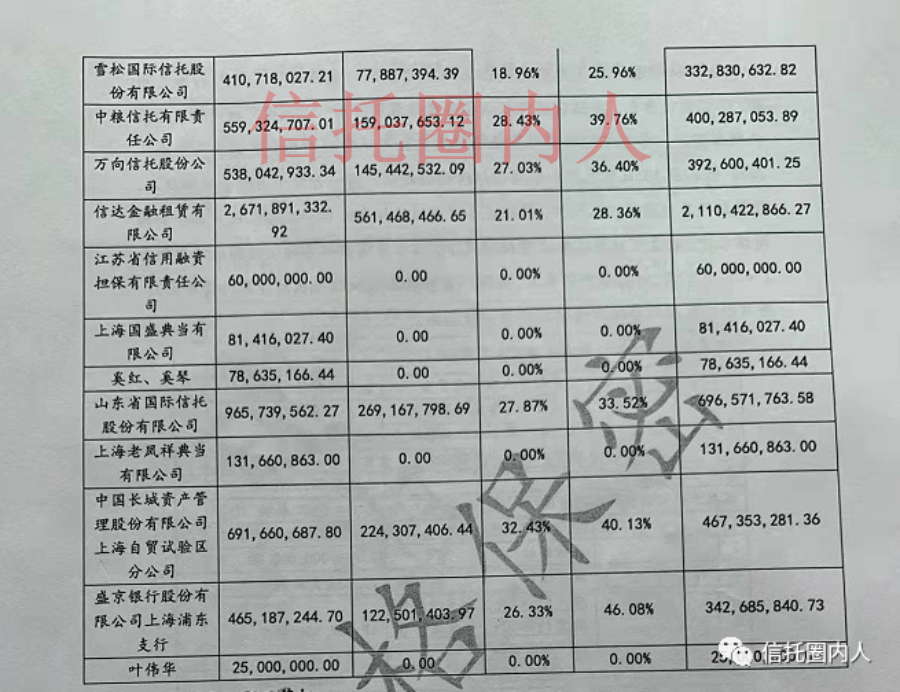 雪松国际信托股
份有限公司
410,718,027.21 77,887,394.39 18.96% 25.96% 332,830,632.82
中粮信托有限责
任公司
559,324,707.01 159,037,653.12 28.43% 39.76% 400,287,053.89
万向信托股份公
司
538,042,933.34 145,442,532.09 27.03% 36.40% 392,600,401.25
信达金融租赁有
限公司
2,671,891,332.
92
561,468,466.65 21.01% 28.36% 2,110,422,866.27
江苏省信用融资
担保有限责任公
司
60,000,000.00 0.00 0.00% 0.00% 60,000,000.00
上海国盛典当有
限公司
81,416,027.40 0.00 0.00% 0.00% 81,416,027.40
奚红、奚琴 78,635,166.44 0.00 0.00% 0.00% 78,635,166.44
山东省国际信托
股份有限公司
965,739,562.27 269,167,798.69 27.87% 33.52% 696,571,763.58
上海老凤祥典当
有限公司
131,660,863.00 0.00 0.00% 0.00% 131,660,863.00
中国长城资产管
理股份有限公司
上海自贸试验区
分公司
691,660,687.80 224,307,406.44 32.43% 40.13% 467,353,281.36
盛京银行股份有
限公司上海浦东
支行
465,187,244.70 122,501,403.97 26.33% 46.08% 342,685,840.73
叶伟华 25,000,000.00 0.00 0.00% 0.00%
信托圈内人
格保密
信托圈内人